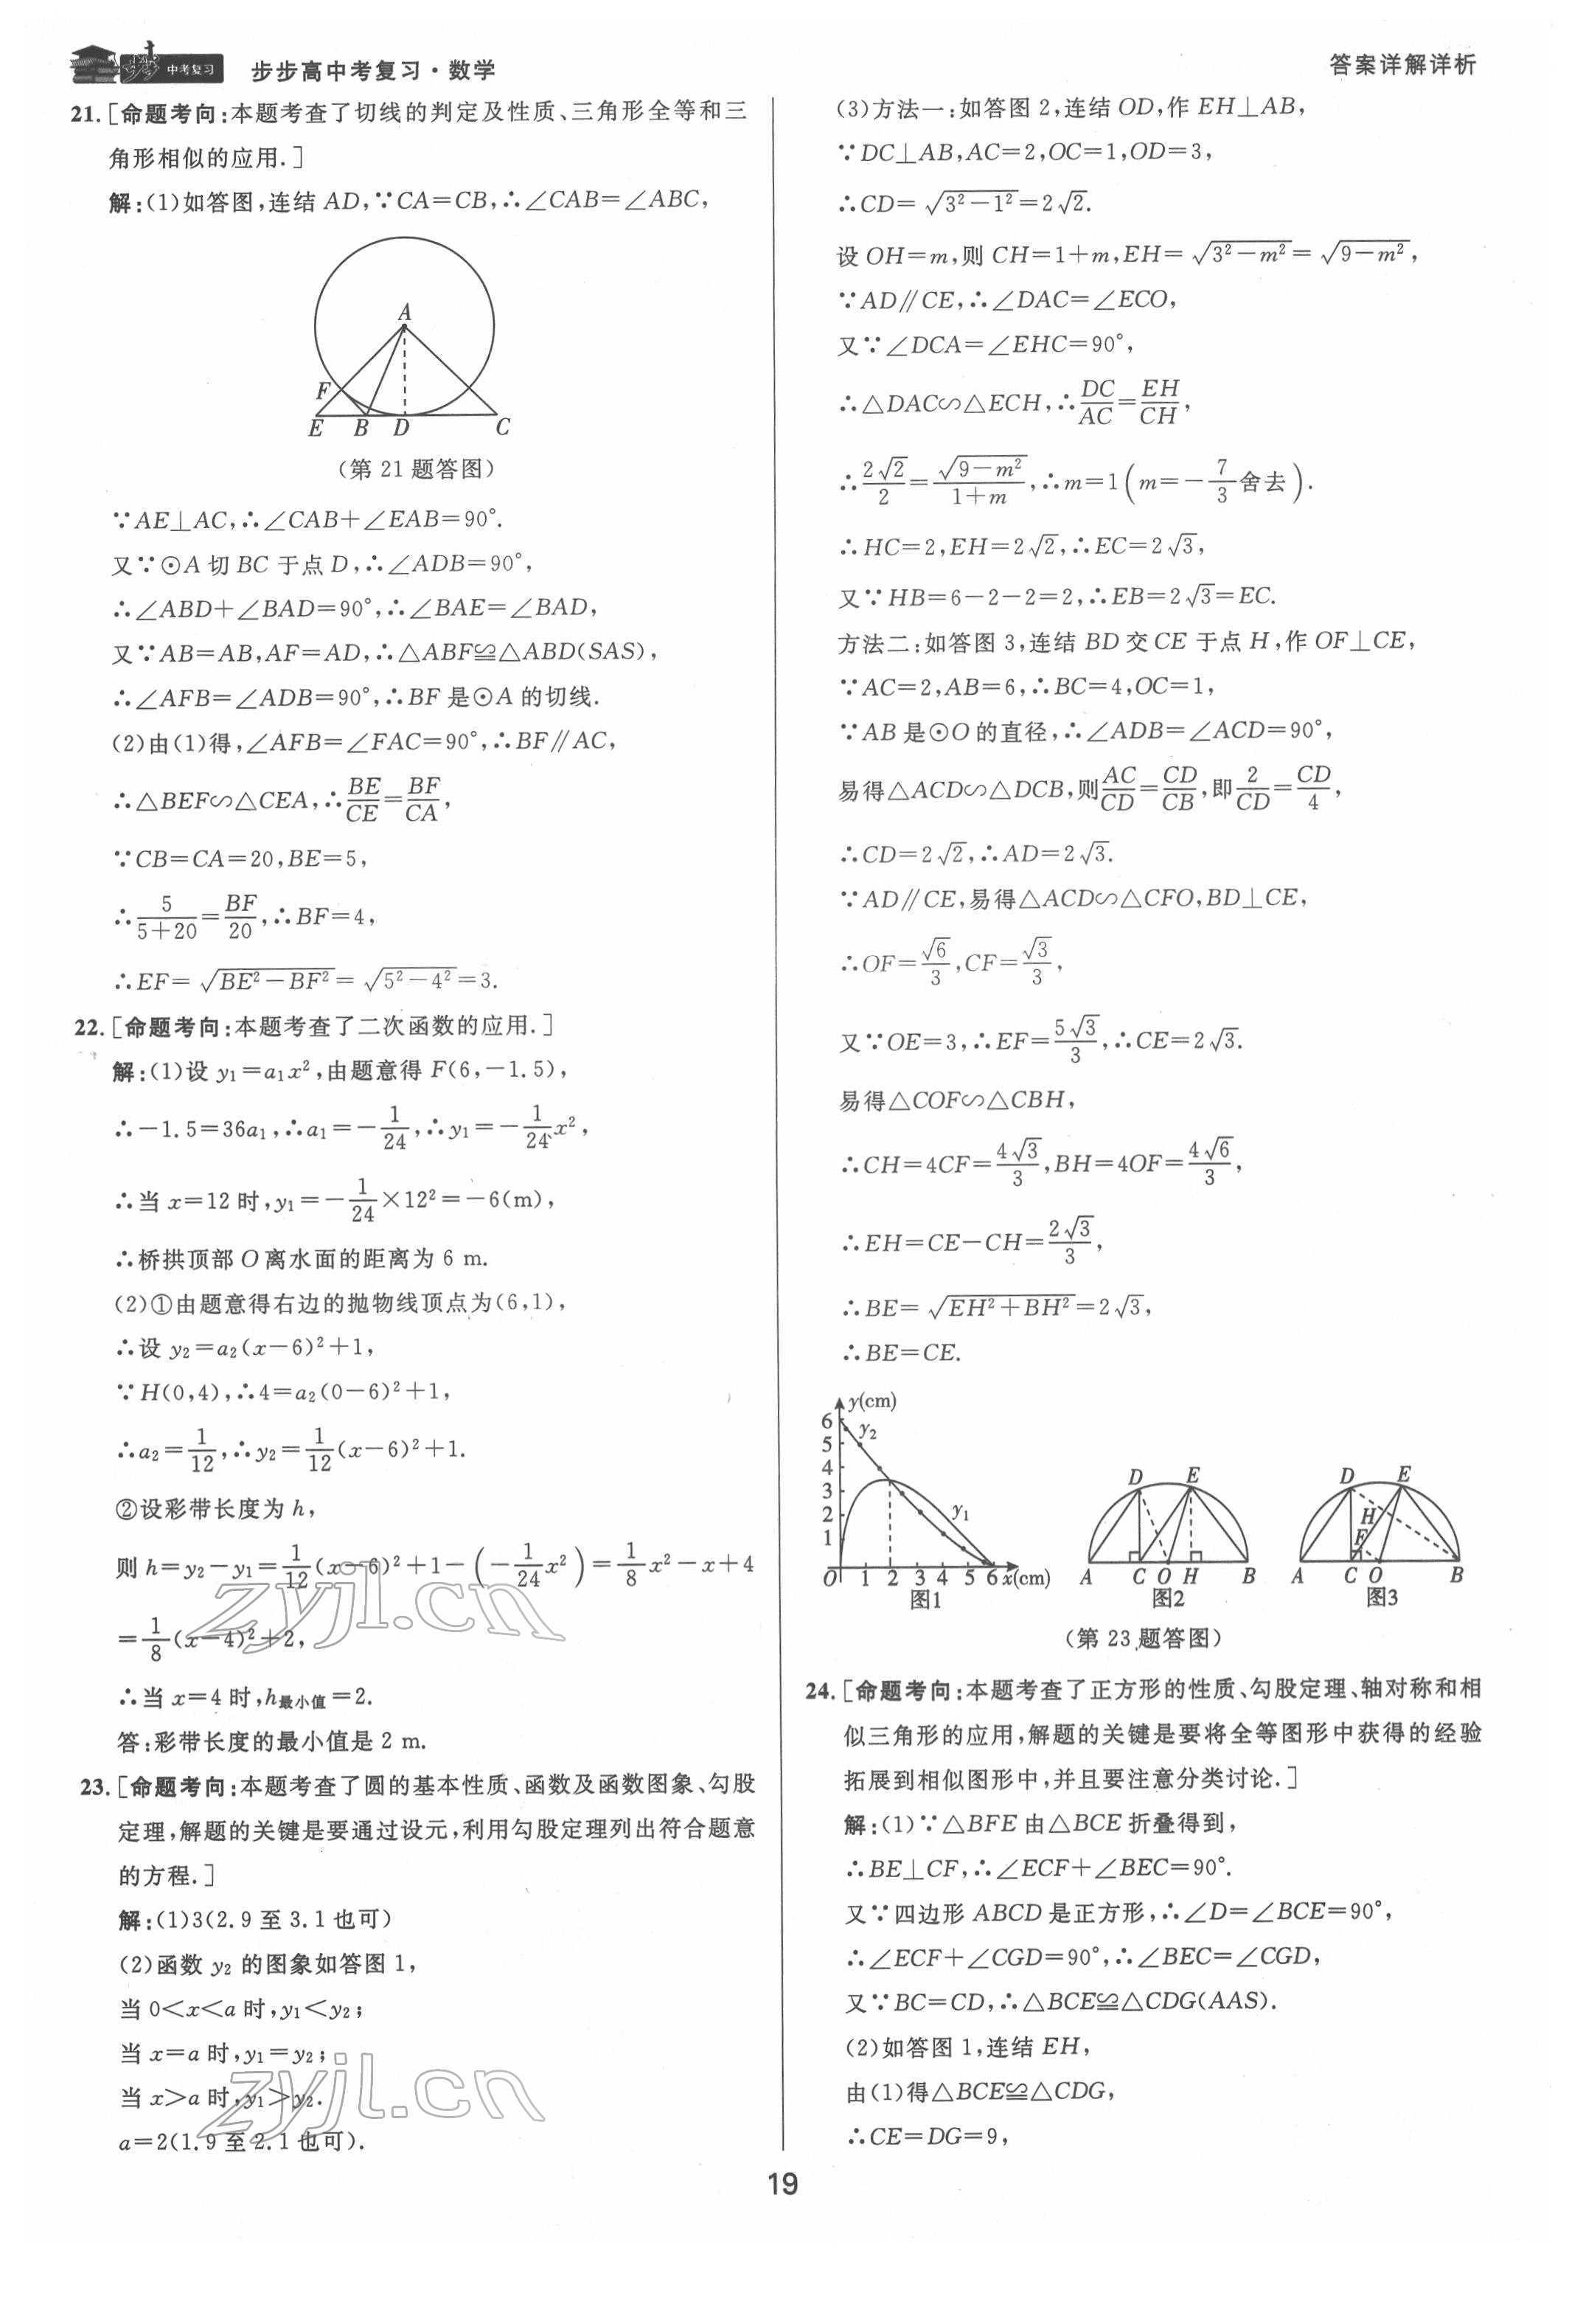 中考复习 步步高中考复习·数学
答案详解详析
21.[命题考向:本题考查了切线的判定及性质、三角形全等和三
角形相似的应用.]
解:(1)如答图,连结 AD,∵CA=CB,∴∠CAB=∠ABC,
A
F
E B D C
(第 21 题答图)
∵AE⊥AC,∴∠CAB+∠EAB=90°.
又∵⊙A 切 BC 于点 D,∴∠ADB=90°,
∴∠ABD+∠BAD=90°,∴∠BAE=∠BAD,
又∵AB=AB,AF=AD,∴△ABF≌△ABD(SAS),
∴∠AFB=∠ADB=90°,∴BF 是⊙A 的切线.
(2)由(1)得,∠AFB=∠FAC=90°,∴BF∥AC,
∴△BEF∽△CEA,∴BE/CE=BF/CA,
∵CB=CA=20,BE=5,
∴5/(5+20)=BF/20,∴BF=4,
∴EF=√(BE²-BF²)=√(5²-4²)=3.
22.[命题考向:本题考查了二次函数的应用.]
解:(1)设 y₁=a₁x²,由题意得 F(6,-1.5),
∴-1.5=36a₁,∴a₁=-1/24,∴y₁=-1/24x²,
∴当 x=12 时,y₁=-1/24×12²=-6(m),
∴桥拱顶部 O 离水面的距离为 6 m.
(2)①由题意得右边的抛物线顶点为(6,1),
∴设 y₂=a₂(x-6)²+1,
∵H(0,4),∴4=a₂(0-6)²+1,
∴a₂=1/12,∴y₂=1/12(x-6)²+1.
②设彩带长度为 h,
则 h=y₂-y₁=1/12(x-6)²+1-(-1/24x²)=1/8x²-x+4
=1/8(x-4)²+2,
∴当 x=4 时,h最小值=2.
答:彩带长度的最小值是 2 m.
23.[命题考向:本题考查了圆的基本性质、函数及函数图象、勾股
定理,解题的关键是要通过设元,利用勾股定理列出符合题意
的方程.]
解:(1)3(2.9 至 3.1 也可)
(2)函数 y₂ 的图象如答图 1,
当 0<x<a 时,y₁<y₂;
当 x=a 时,y₁=y₂;
当 x>a 时,y₁>y₂.
a=2(1.9 至 2.1 也可).
zyjl.cn
zyjl.cn
(3)方法一:如答图 2,连结 OD,作 EH⊥AB,
∵DC⊥AB,AC=2,OC=1,OD=3,
∴CD=√(3²-1²)=2√2.
设 OH=m,则 CH=1+m,EH=√(3²-m²)=√(9-m²),
∵AD∥CE,∴∠DAC=∠ECO,
又∵∠DCA=∠EHC=90°,
∴△DAC∽△ECH,∴DC/AC=EH/CH,
∴2√2/2=√(9-m²)/(1+m),∴m=1(m=-7/3舍去).
∴HC=2,EH=2√2,∴EC=2√3,
又∵HB=6-2-2=2,∴EB=2√3=EC.
方法二:如答图 3,连结 BD 交 CE 于点 H,作 OF⊥CE,
∵AC=2,AB=6,∴BC=4,OC=1,
∵AB 是⊙O 的直径,∴∠ADB=∠ACD=90°,
易得△ACD∽△DCB,则AC/CD=CD/CB,即2/CD=CD/4,
∴CD=2√2,∴AD=2√3.
∵AD∥CE,易得△ACD∽△CFO,BD⊥CE,
∴OF=√6/3,CF=√3/3,
又∵OE=3,∴EF=5√3/3,∴CE=2√3.
易得△COF∽△CBH,
∴CH=4CF=4√3/3,BH=4OF=4√6/3,
∴EH=CE-CH=2√3/3,
∴BE=√(EH²+BH²)=2√3,
∴BE=CE.
y(cm)
6
5
4
3
2
1
y₂
y₁
O 1 2 3 4 5 6 x(cm)
图1
D E
A C O H B
图2
D E
H
F
A C O B
图3
(第 23 题答图)
24.[命题考向:本题考查了正方形的性质、勾股定理、轴对称和相
似三角形的应用,解题的关键是要将全等图形中获得的经验
拓展到相似图形中,并且要注意分类讨论.]
解:(1)∵△BFE 由△BCE 折叠得到,
∴BE⊥CF,∴∠ECF+∠BEC=90°.
又∵四边形 ABCD 是正方形,∴∠D=∠BCE=90°,
∴∠ECF+∠CGD=90°,∴∠BEC=∠CGD,
又∵BC=CD,∴△BCE≌△CDG(AAS).
(2)如答图 1,连结 EH,
由(1)得△BCE≌△CDG,
∴CE=DG=9,
19